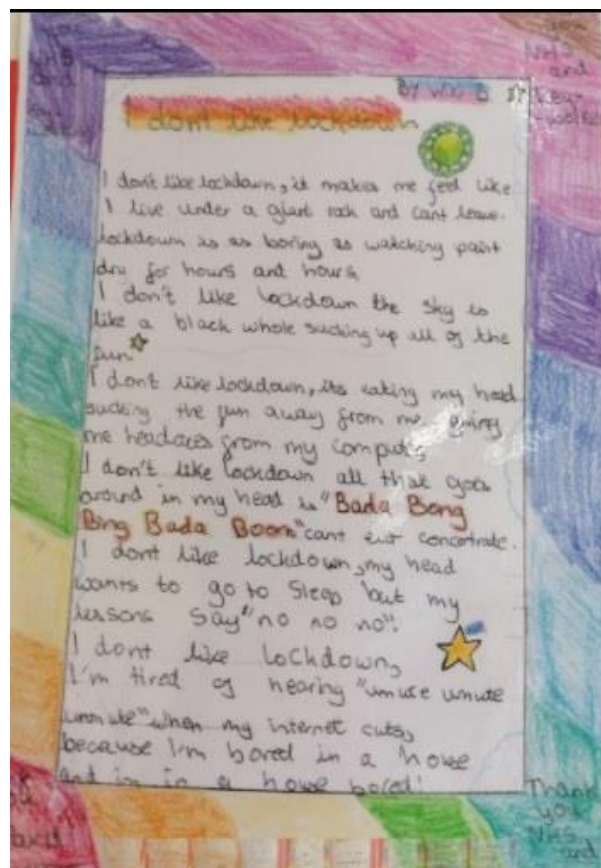 you
NHS
and
key-
By Woo B
NHS
and
key-
-worke
I dont like lockdown
I don't like lockdown, it makes me feel like
I live under a giant rock and cant leave.
lockdown is as boring as watching paint
dry for hours and hours
I don't like lockdown the sky is
like a black whole sucking up all of the
fun
I dont like lockdown, its eating my head
sucking the fun away from me giving
me headaces from my computer
I don't like lockdown all that goes
around in my head is "Bada Bong
Bing Bada Boom" cant concentrate.
I dont like lockdown, my head
wants to go to sleep but my
lessons say "no no no".
I dont like lockdown,
I'm tired of hearing "unmute
when my internet cuts,
because I'm bored in a house
and in a house bored!
Thank
you
NHS
and